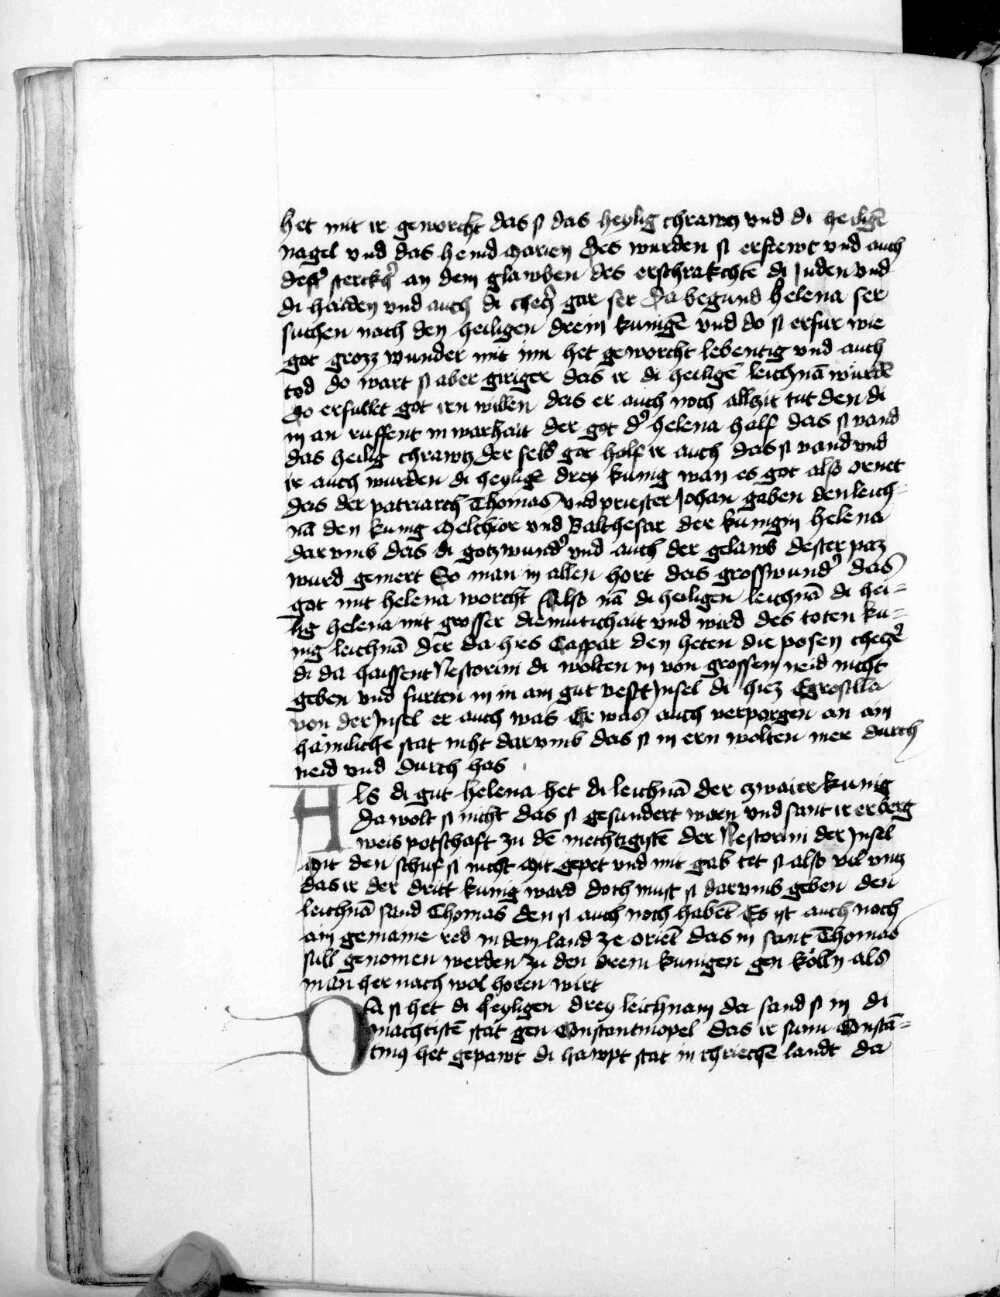 het mit ir geworcht das s das heylig chrawcz vnd di heiligē
nagel vnd das hemd Marien Des wurden si erfrewt vnd auch
dest sterckh̉ an dem glawben des erschrakchtē di Juden vnd
di haiden vnd auch di checz̉ gar ser Da begund helena ser
suchen nach den heiligen drein kunigē vnd do si erfur wie
got grozz wunder mit inn het geworcht lebentig vnd auch
tod do wart si aber giriger das ir di heiligē leichnā wurdē
Do erfullet got iren willen das er auch noch allzeit tut den di
in an ruffent in warhait der got d̉ helena half das si vand
das heilig chrawcz der selb got half ir auch das si vand vnd
ir auch wurden di heyligē drey kunig wan es got also ornet
das der patriarch Thomas vnd priester Johan gaben den leich-
nā den kung Melchior vnd Balthesar der kunigin helena
dar vmb das di gotz wund̉ vnd auch der gelawb dester paz
wurd gemert So man in allen hort das gross wund̉ das
got mit helena worcht Also nā di heiligen leichnā di hei-
lig helena mit grosser diemutichait vnd wird des toten ku-
nig leichnā der da hies Caspar den heten die posen checzē
di da haissent Nestorini di wolten in von grossem neid nicht
geben vnd furten in in ain gut vest Jnsel di hiez Egrosilla
von der Jnsel er auch was Er was auch verporgen an ain
haimliche stat nicht darvmb das si in ern wolten mer durch
neid vnd durch has
Als di gut helena het di leichnā der zwaier kunig
Da wolt si nicht das si gesundert warn vnd sant ir erberg
weis potschaft zu dē mechtigistē der Nestorini der Jnsel
Mit den schuf si nicht Mit gepet vnd mit gab tet si also vil vncz
das ir der dritt kunig ward doch must si dar vmb geben den
leichnā sand Thomas den si auch noch habēt Es ist auch noch
ain gemaine red in dem land ze oriēt das in sant Thomas
sull genomen werden zu den drein kunigen gen Kölln als
man her nach wol horen wirt
Da si het di heyligen drey leichnam da sand si in di
machtistē stat gen Constantinopel das ir sun Constā-
tinus het gepawt di hawpt stat in chriechē landt da